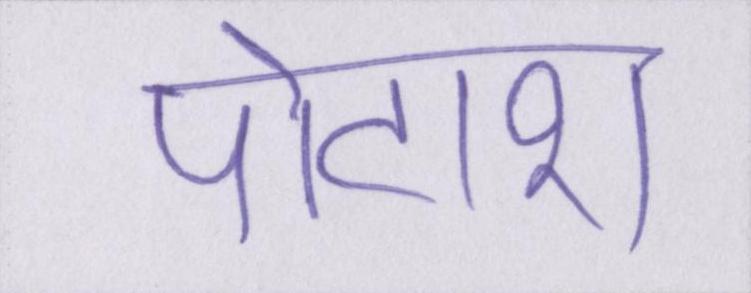 पोटाश